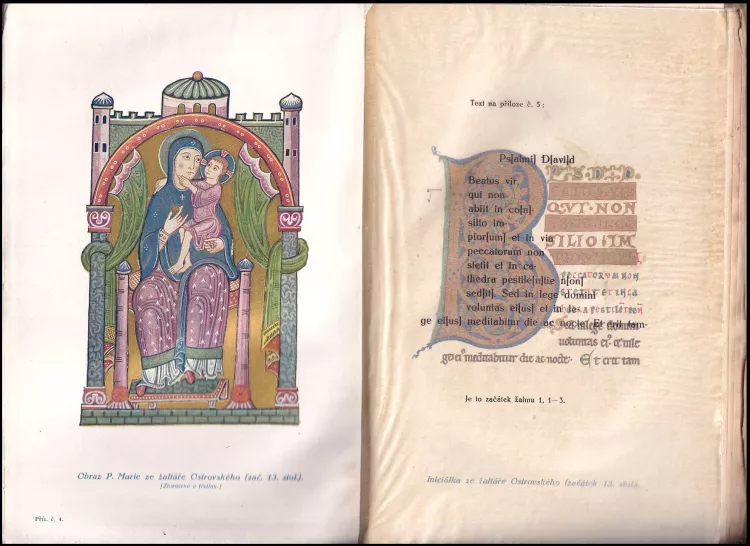 Obraz P. Marie ze žaltáře Ostrovského (zač. 13. stol.).
(Zmenseno o třetinu.)
Příl. č. 4.
Text na příloze č. 5:
Ps[almi] D[avi]d
Beatus vir,
qui non
abiit in co[n]
silio im-
pior[um] et in via
peccatorum non
stetit et in ca-
thedra pestile[n]tie n[on]
sed[it]. Sed in lege domini
voluntas ei[us] et in le-
ge ei[us] meditabitur die ac nocte. Et erit tam-
B
P·S·D·D·
QVI·NON
SILIO IM
peccatorum non
uoluntas ei᾿
meditabitur die ac nocte. Et erit tam
Je to začátek žalmu 1, 1—3.
Iniciálka ze žaltáře Ostrovského (začátek 13. stol.).